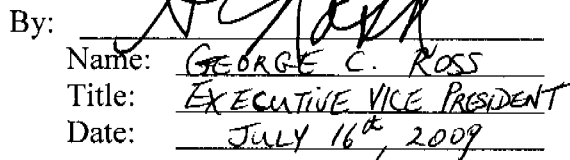 By:
Name: GEORGE C. ROSS
Title: EXECUTIVE VICE PRESIDENT
Date: JULY 16th, 2009